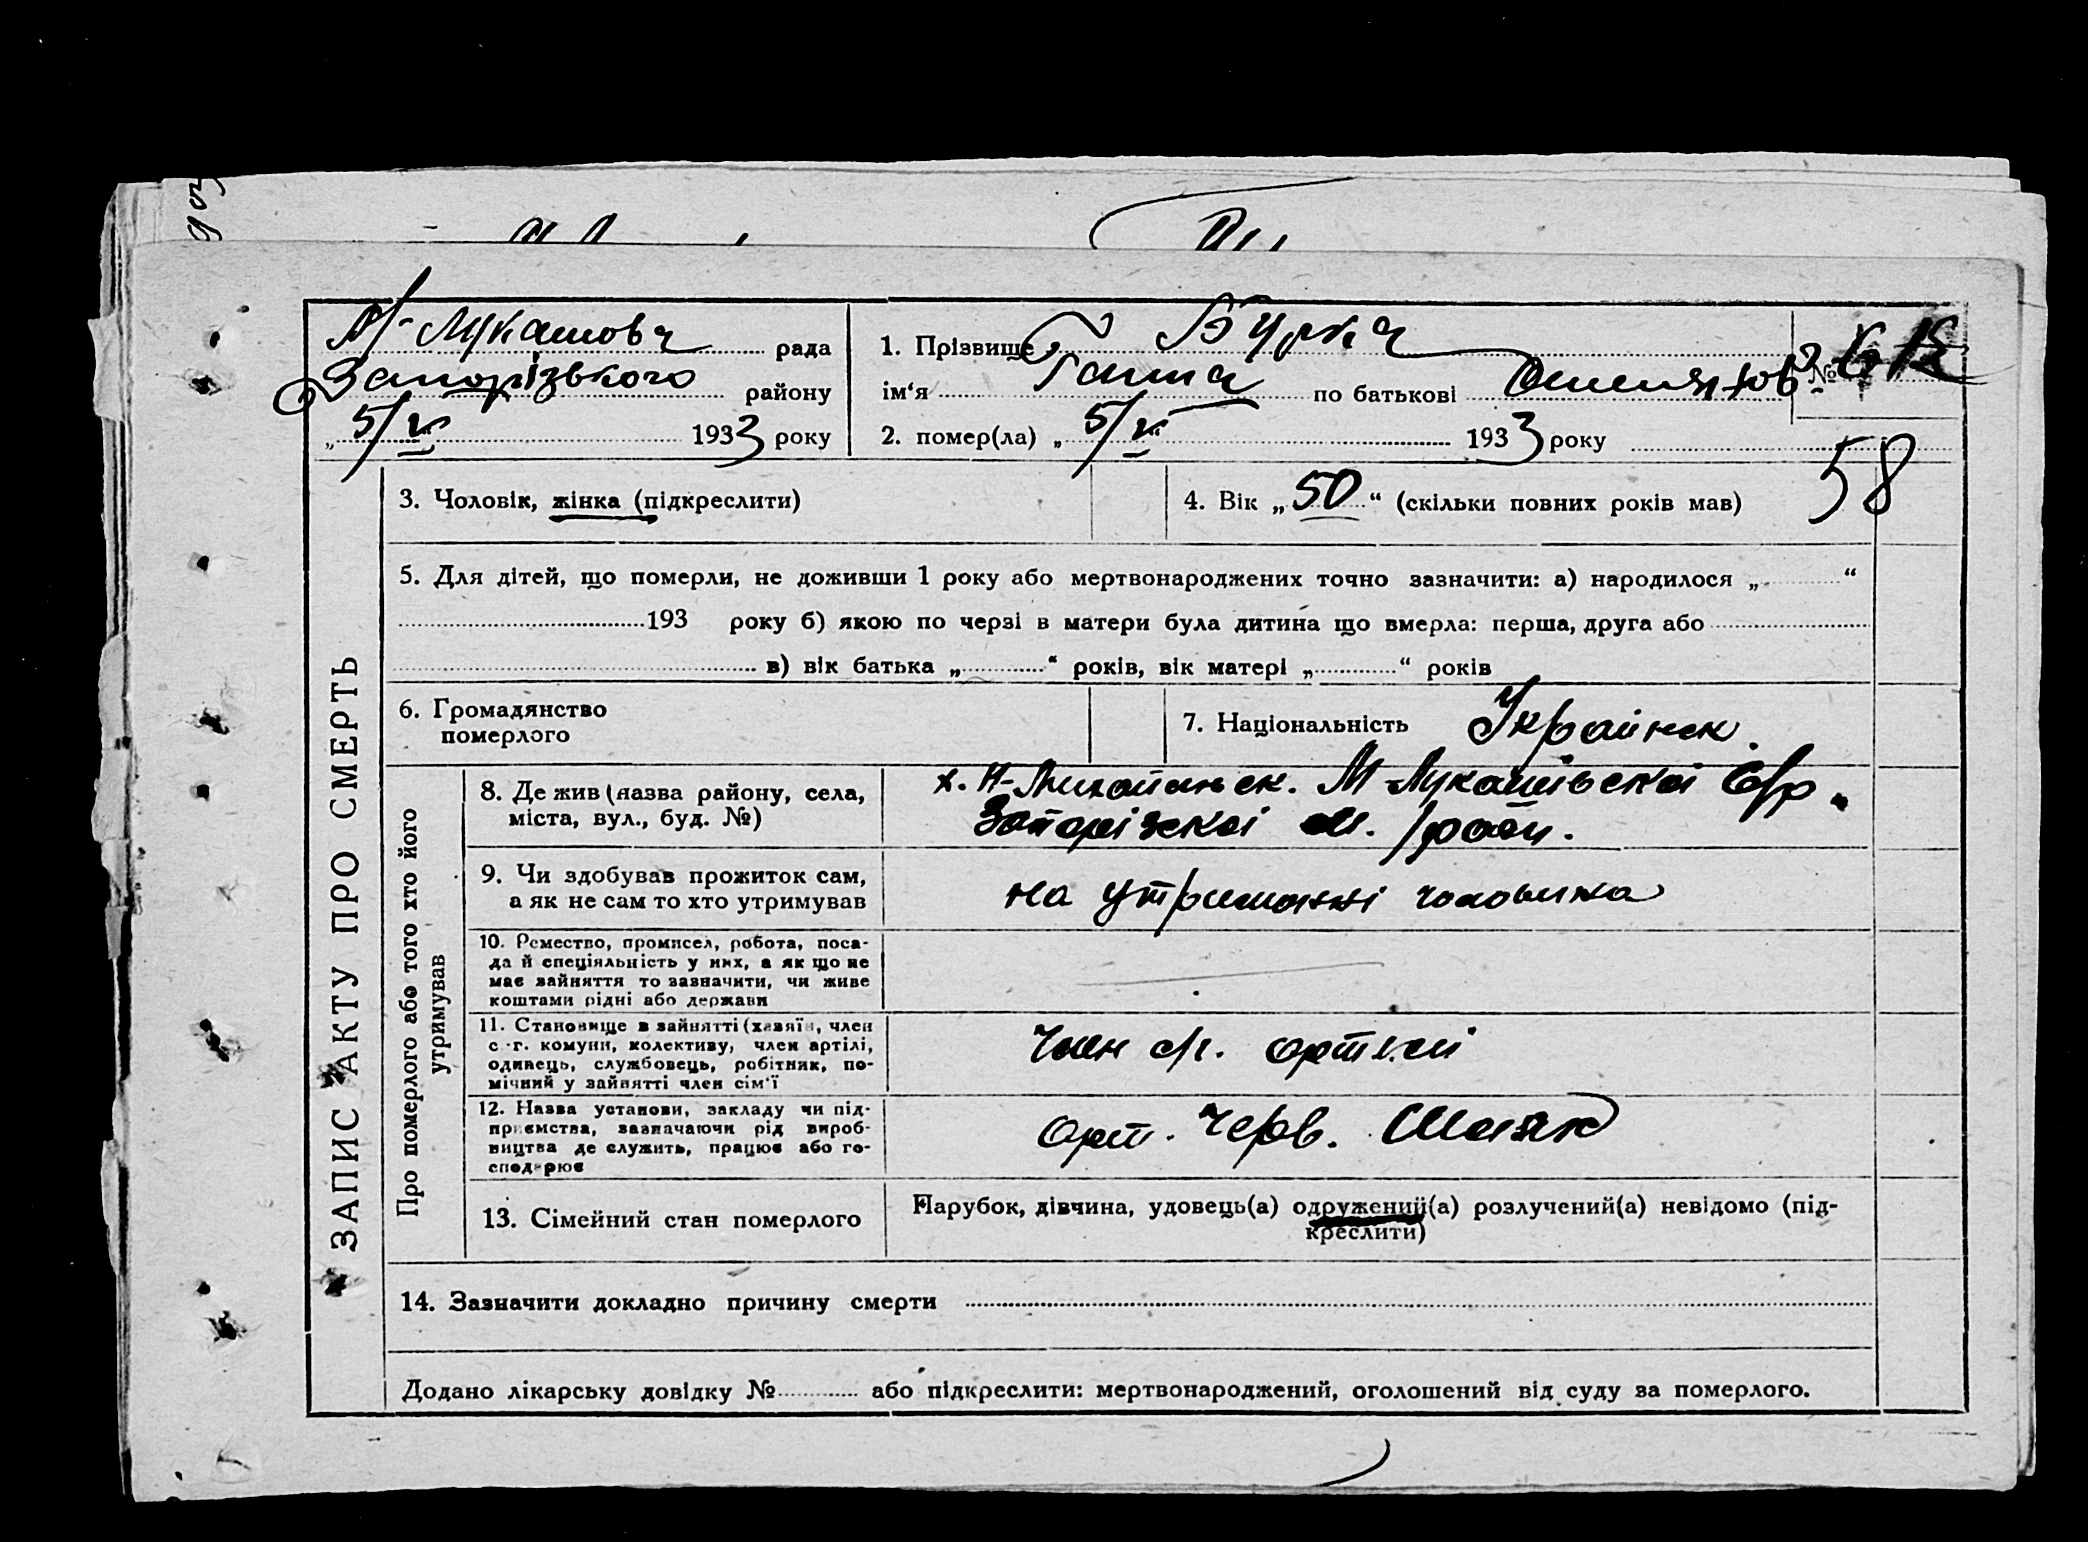 М-Лукашовая рада
Запорізького району
„ 5/V 1933 року
1. Прізвище Бурка
ім‘я Ганна по батькові №
2. помер(ла) „ 5/V 1933 року
58
ЗАПИС АКТУ ПРО СМЕРТЬ
3. Чоловік, жінка (підкреслити)
4. Вік „50“ (скільки повних років мав)
5. Для дітей, що померли, не доживши 1 року або мертвонароджених точно зазначити: а) народилося „ “
193 року б) якою по черзі в матери була дитина що вмерла: перша, друга або
в) вік батька „ “ років, вік матері „ “ років
6. Громадянство
померлого
7. Національність Українск.
Про померлого або того хто його
утримував
8. Де жив (назва району, села,
міста, вул., буд. №)
х. Н- М-Лукашівської С/р
Запорізскоі м. /рай.
9. Чи здобував прожиток сам,
а як не сам то хто утримував
на утриманні чоловіка
10. Ремество, промисел, робота, поса-
да й спеціяльність у них, а як що не
має зайняття то зазначити, чи живе
коштами рідні або держави
11. Становище в зайнятті (хазяїн, член
с.-г. комуни, колективу, член артілі,
одинець, службовець, робітник, по-
мічний у зайнятті член сім‘ї
член с/г. артелі
12. Назва установи, закладу чи під-
приємства, зазначаючи рід вироб-
ництва де служить, працює або го-
сподарює
арт. Черв. Маяк
13. Сімейний стан померлого
Парубок, дівчина, удовець(а) одружений(а) розлучений(а) невідомо (під-
креслити)
14. Зазначити докладно причину смерти
Додано лікарську довідку № або підкреслити: мертвонароджений, оголошений від суду за померлого.